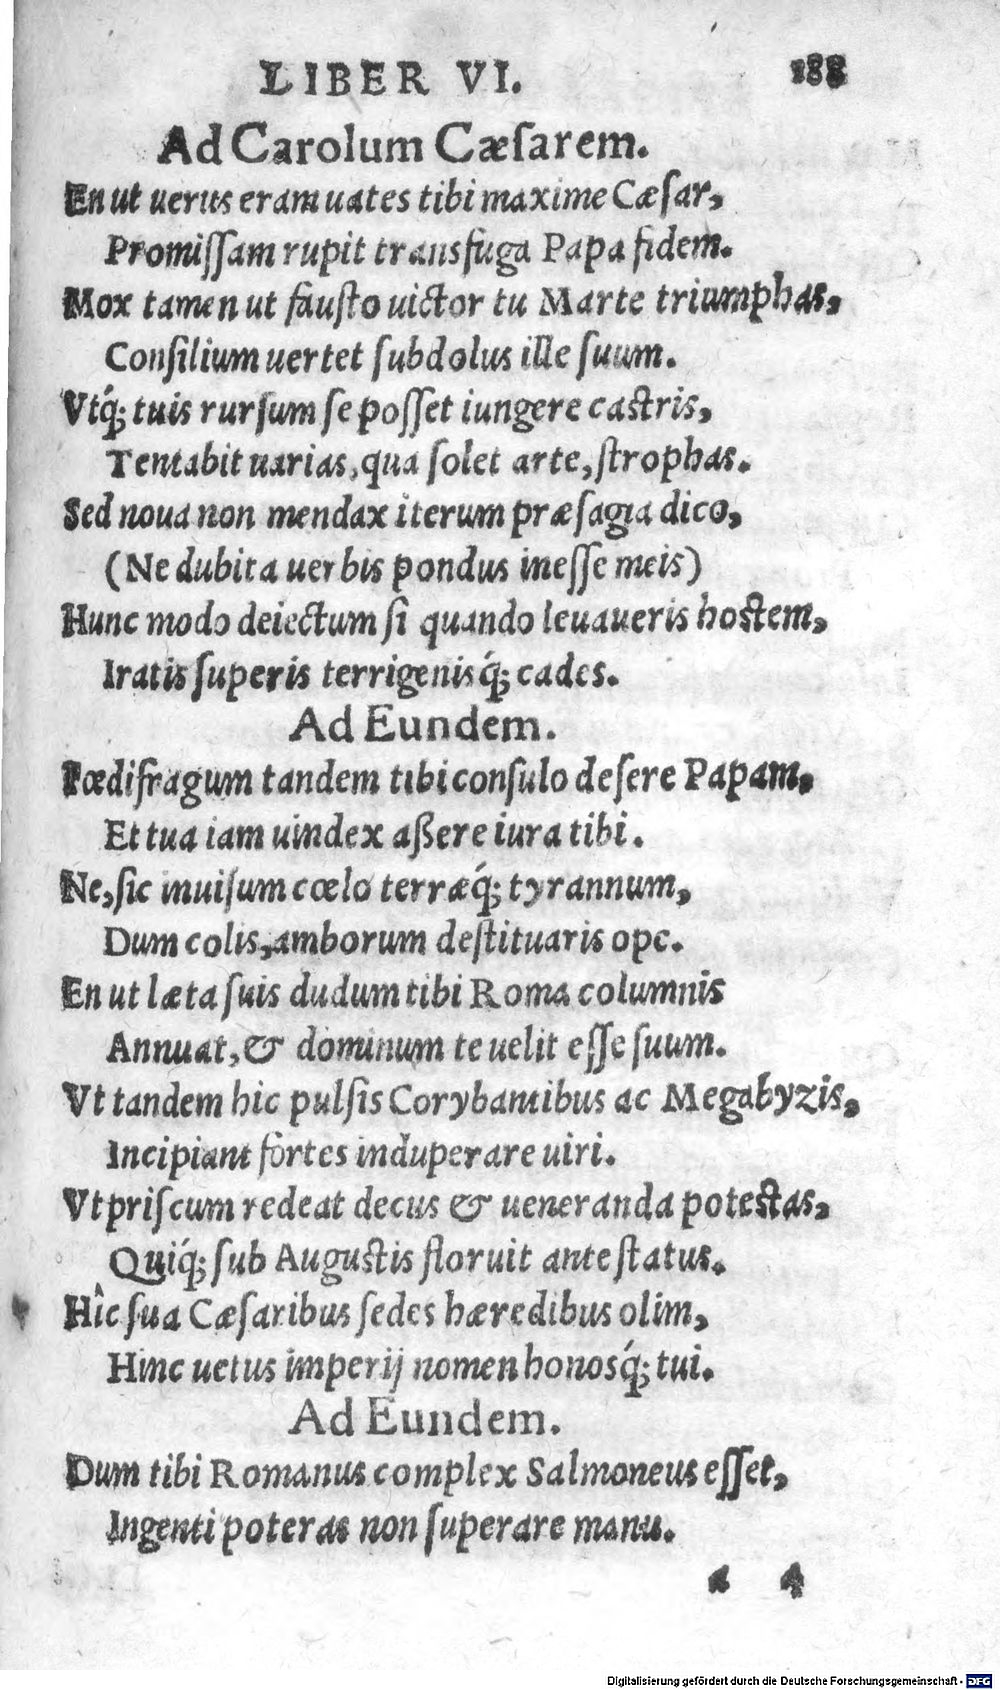 LIBER VI. 188
Ad Carolum Cæſarem.
En ut uerus eram uates tibi maxime Cæſar,
Promiſſam rupit transfuga Papa fidem.
Mox tamen ut fauſto uictor tu Marte triumphas,
Conſilium uertet ſubdolus ille ſuum.
Vtq́; tuis rurſum ſe poſſet iungere caſtris,
Tentabit uarias, qua ſolet arte, ſtrophas.
Sed noua non mendax iterum præſagia dico,
(Ne dubita uerbis pondus ineſſe meis)
Hunc modo deiectum ſi quando leuaueris hoſtem,
Iratis ſuperis terrigenisq́; cades.
Ad Eundem.
Fœdifragum tandem tibi conſulo deſere Papam,
Et tua iam uindex aßere iura tibi.
Ne, ſic inuiſum cœlo terræq́; tyrannum,
Dum colis, amborum deſtituaris ope.
En ut læta ſuis dudum tibi Roma columnis
Annuat, & dominum te uelit eſſe ſuum.
Vt tandem hic pulſis Corybantibus ac Megabyzis,
Incipiant fortes induperare uiri.
Vt priſcum redeat decus & ueneranda poteſtas,
Quiq́; ſub Auguſtis floruit ante ſtatus.
Hîc ſua Cæſaribus ſedes hæredibus olim,
Hinc uetus imperij nomen honosq́; tui.
Ad Eundem.
Dum tibi Romanus complex Salmoneus eſſet,
Ingenti poteras non ſuperare manu.
4
Digitalisierung gefördert durch die Deutsche Forschungsgemeinschaft - DFG